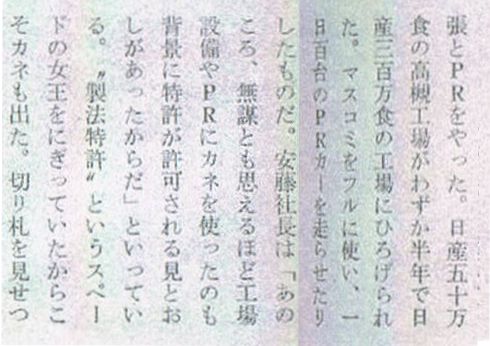 張とＰＲをやった。日産五十万
食の高槻工場がわずか半年で日
産三百万食の工場にひろげられ
た。マスコミをフルに使い、一
日百台のＰＲカーを走らせたり
したものだ。安藤社長は「あの
ころ、無謀とも思えるほど工場
設備やＰＲにカネを使ったのも
背景に特許が許可される見とお
しがあったからだ」といってい
る。〝製法特許〟というスペー
ドの女王をにぎっていたからこ
そカネも出た。切り札を見せつ